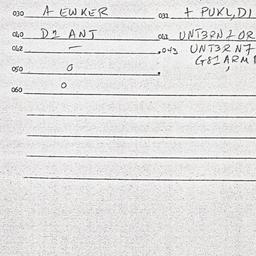 030 A EWKER
031 + PUKL, DI
040 D1 ANT
041 UNT3RN7 OR
042 —
043 UNT3R N7
G81 ARM
050 0
060 0